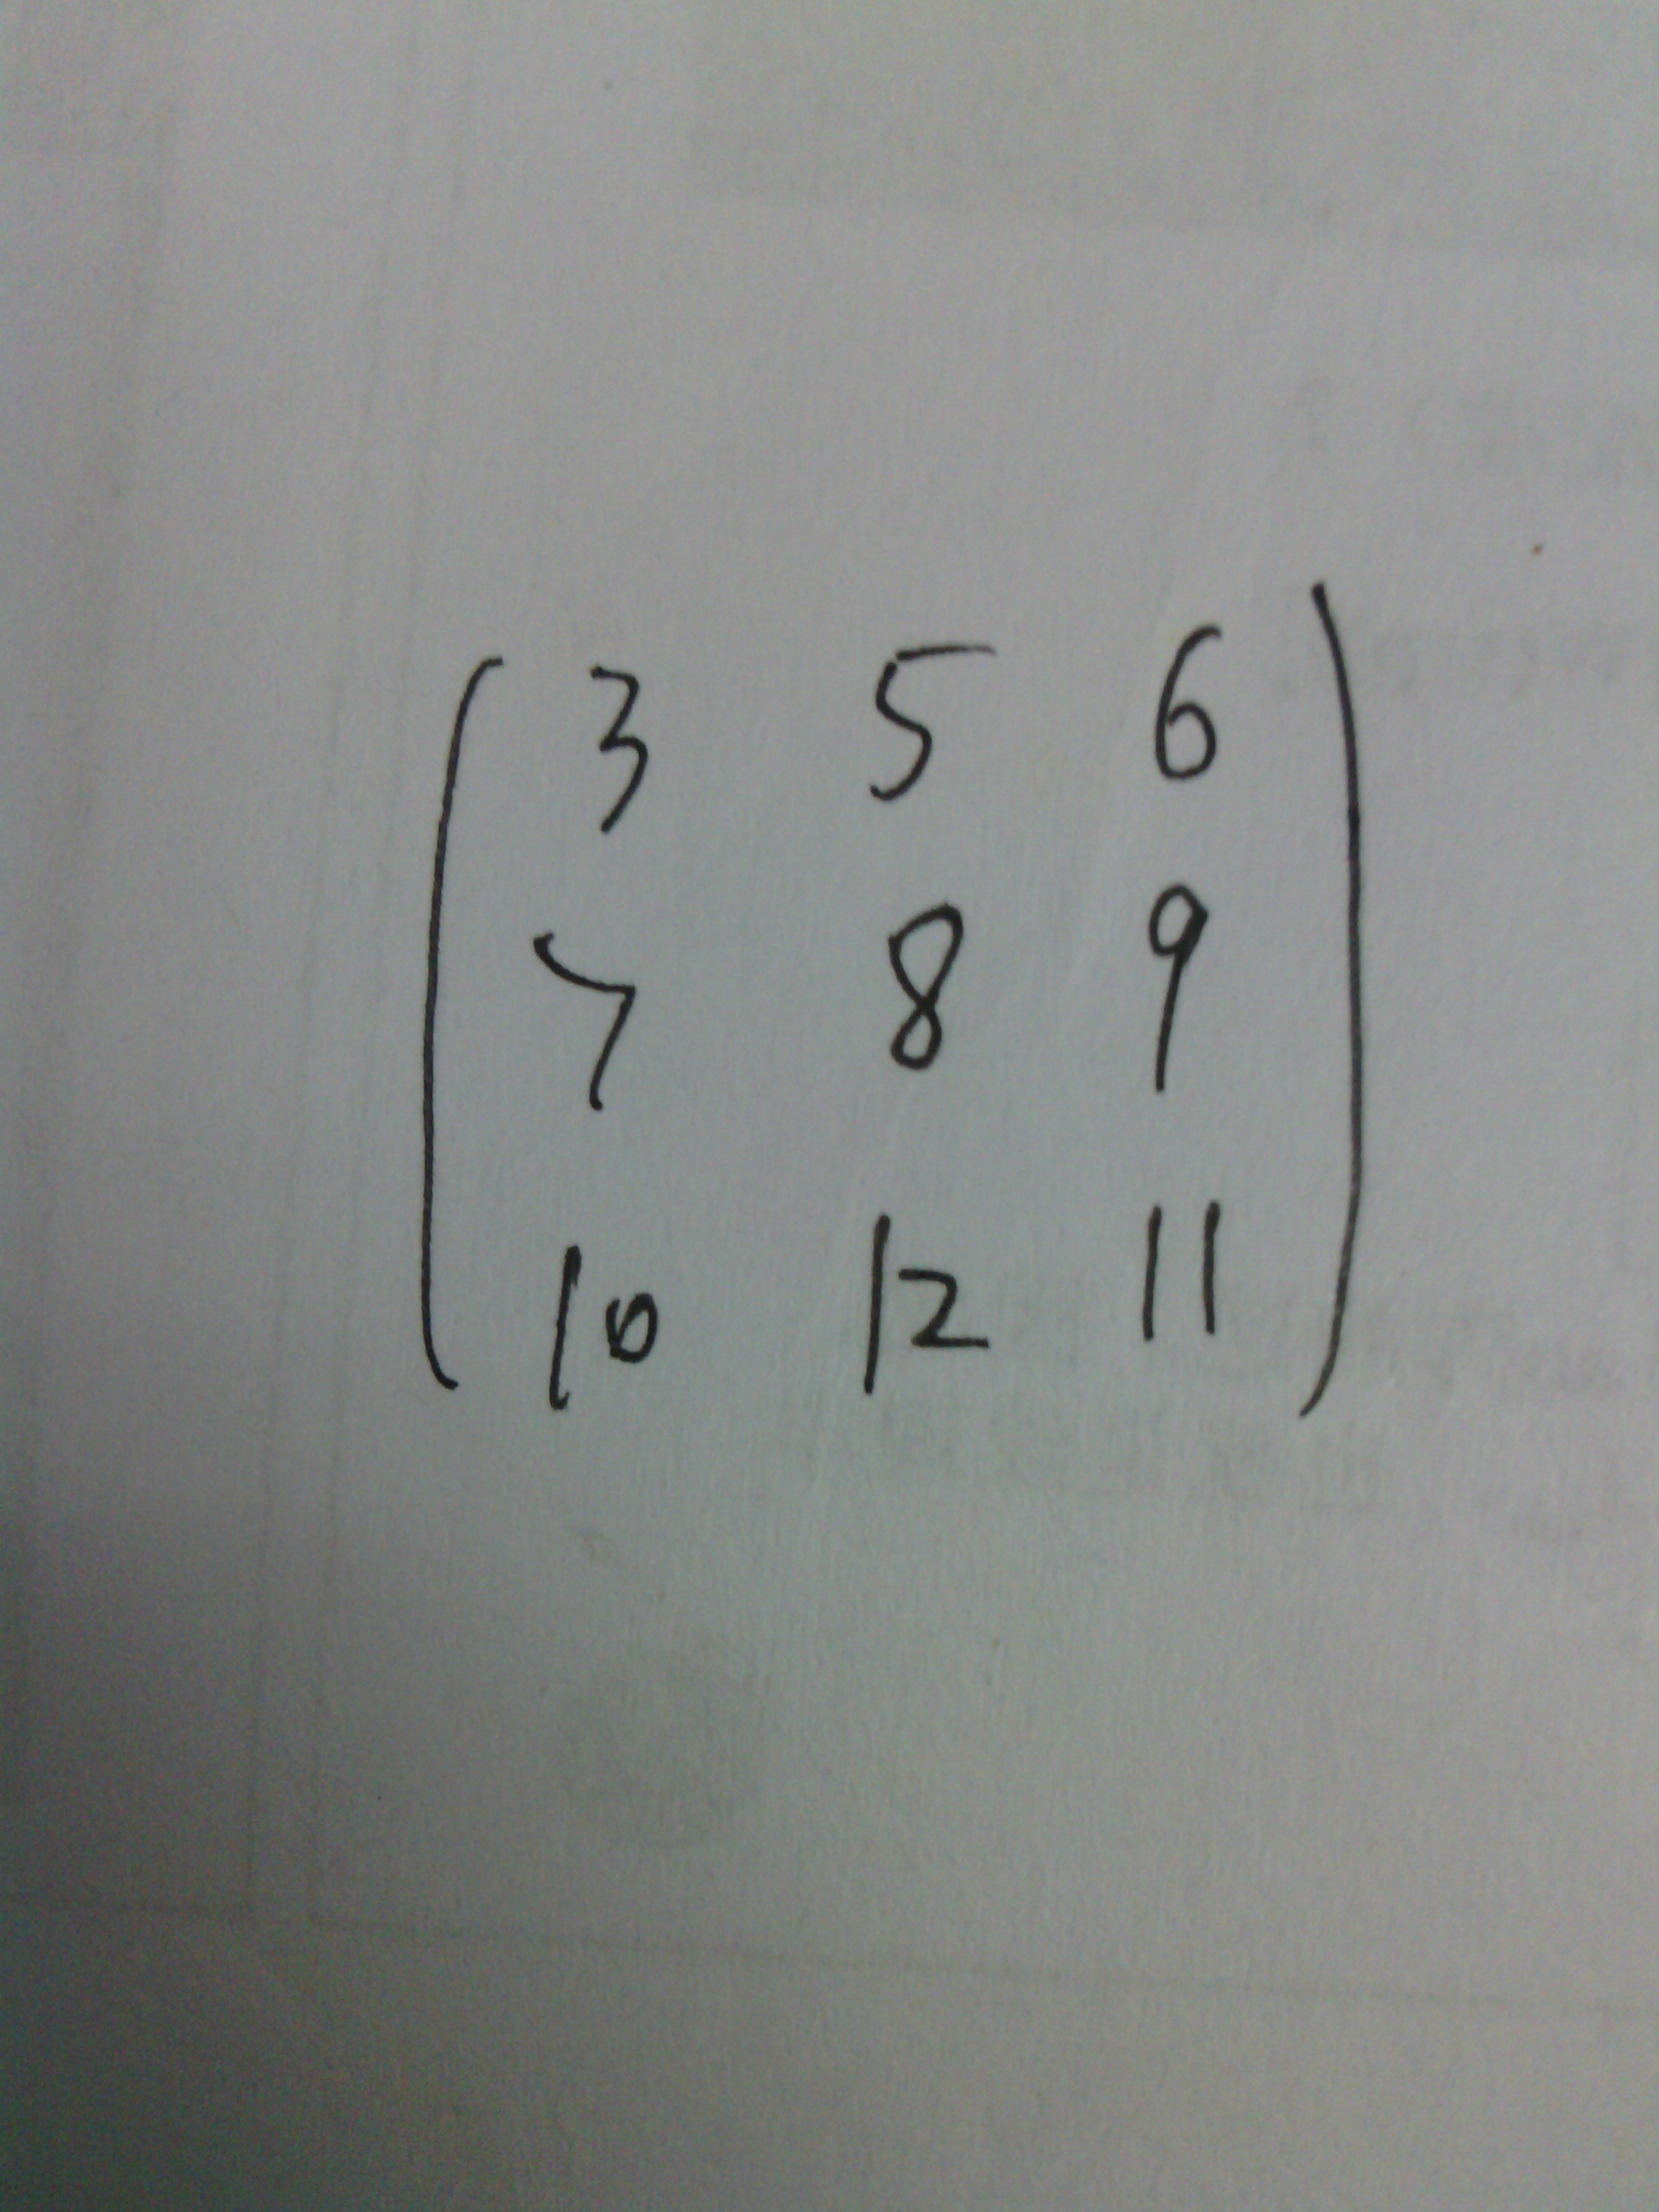 3 5 6
7 8 9
10 12 11